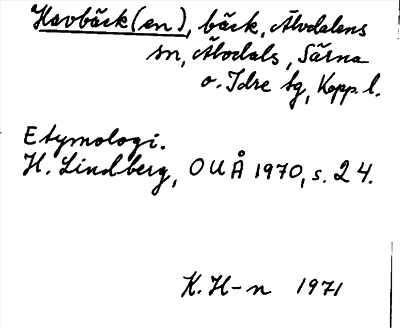 Havbäck(en), bäck, Älvdalens
sn, Älvdals, Särna
o. Idre tg, Kopp. l.
Etymologi.
H. Lindberg, OUÅ 1970, s. 24.
K. H-n 1971